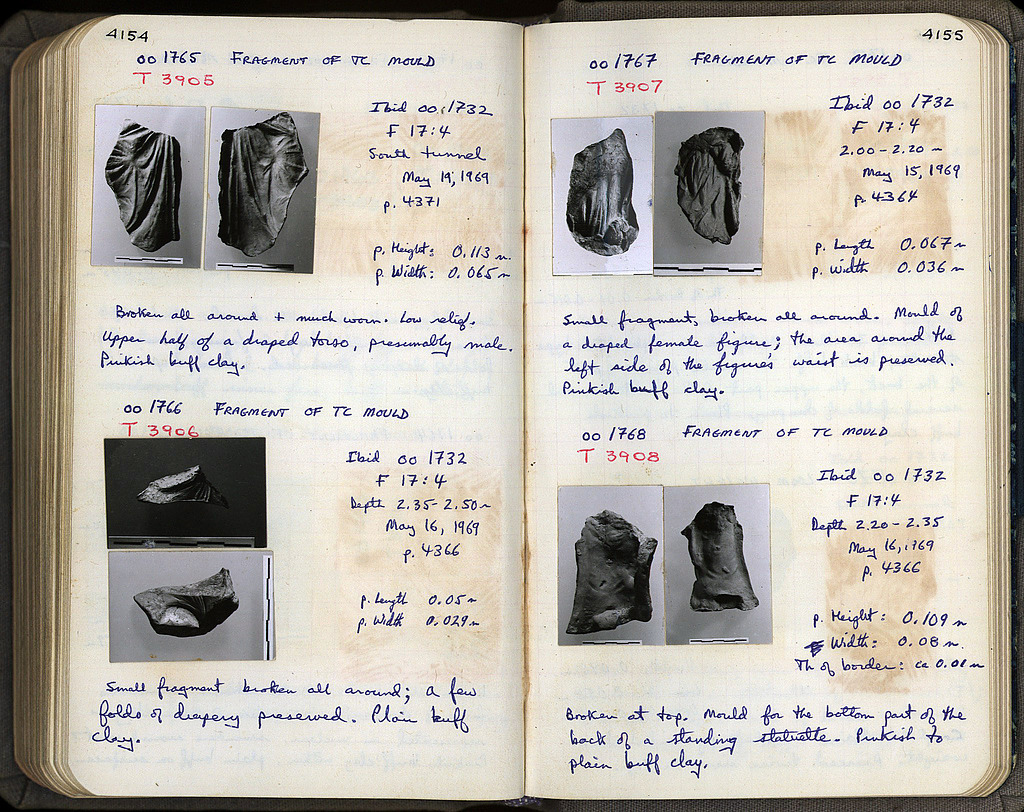 4154
oo 1765 FRAGMENT OF TC MOULD
T 3905
Ibid oo 1732
F 17:4
South tunnel
May 19, 1969
p. 4371
p. Height: 0.113 m.
p. Width: 0.065 m
Broken all around + much worn. Low relief.
Upper half of a draped torso, presumably male.
Pinkish buff clay.
oo 1766 FRAGMENT OF TC MOULD
T 3906
Ibid oo 1732
F 17:4
Depth 2.35-2.50 m
May 16, 1969
p. 4366
p. Length 0.05 m
p. Width 0.029 m
Small fragment broken all around; a few
folds of drapery preserved. Plain buff
clay.
4155
oo 1767 FRAGMENT OF TC MOULD
T 3907
Ibid oo 1732
F 17:4
2.00-2.20 m
May 15, 1969
p. 4364
p. Length 0.067 m
p. Width 0.036 m
Small fragment, broken all around. Mould of
a draped female figure; the area around the
left side of the figure's waist is preserved.
Pinkish buff clay.
oo 1768 FRAGMENT OF TC MOULD
T 3908
Ibid oo 1732
F 17:4
Depth 2.20-2.35
May 16, 1969
p. 4366
p. Height: 0.109 m
Width: 0.08 m.
Th of border: ca 0.01 m
Broken at top. Mould for the bottom part of the
back of a standing statuette. Pinkish to
plain buff clay.